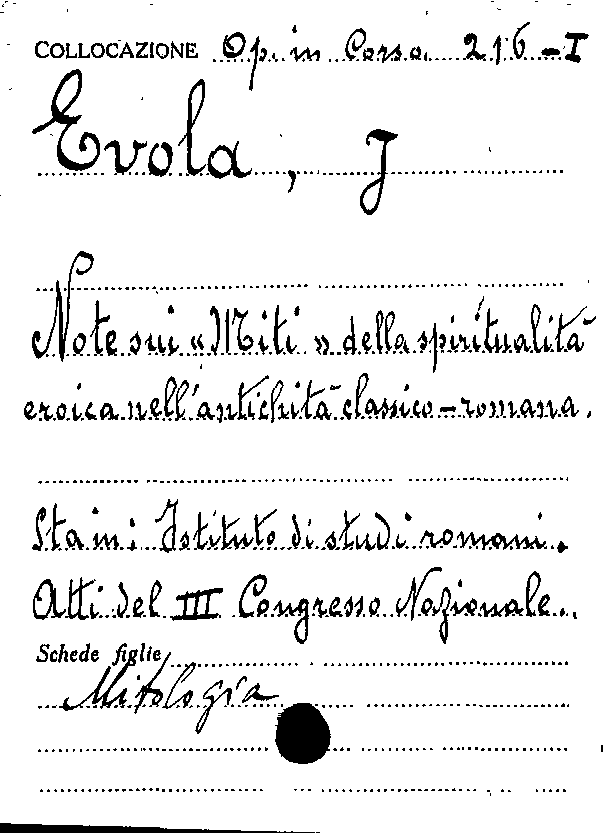 COLLOCAZIONE Op. in Corso. 216-I
Evola, J
Note sui «Miti» della spiritualità
eroica nell'antichità classico-romana.
Sta in: Istituto di studi romani.
Atti del III Congresso Nazionale..
Schede figlie
Mitologia